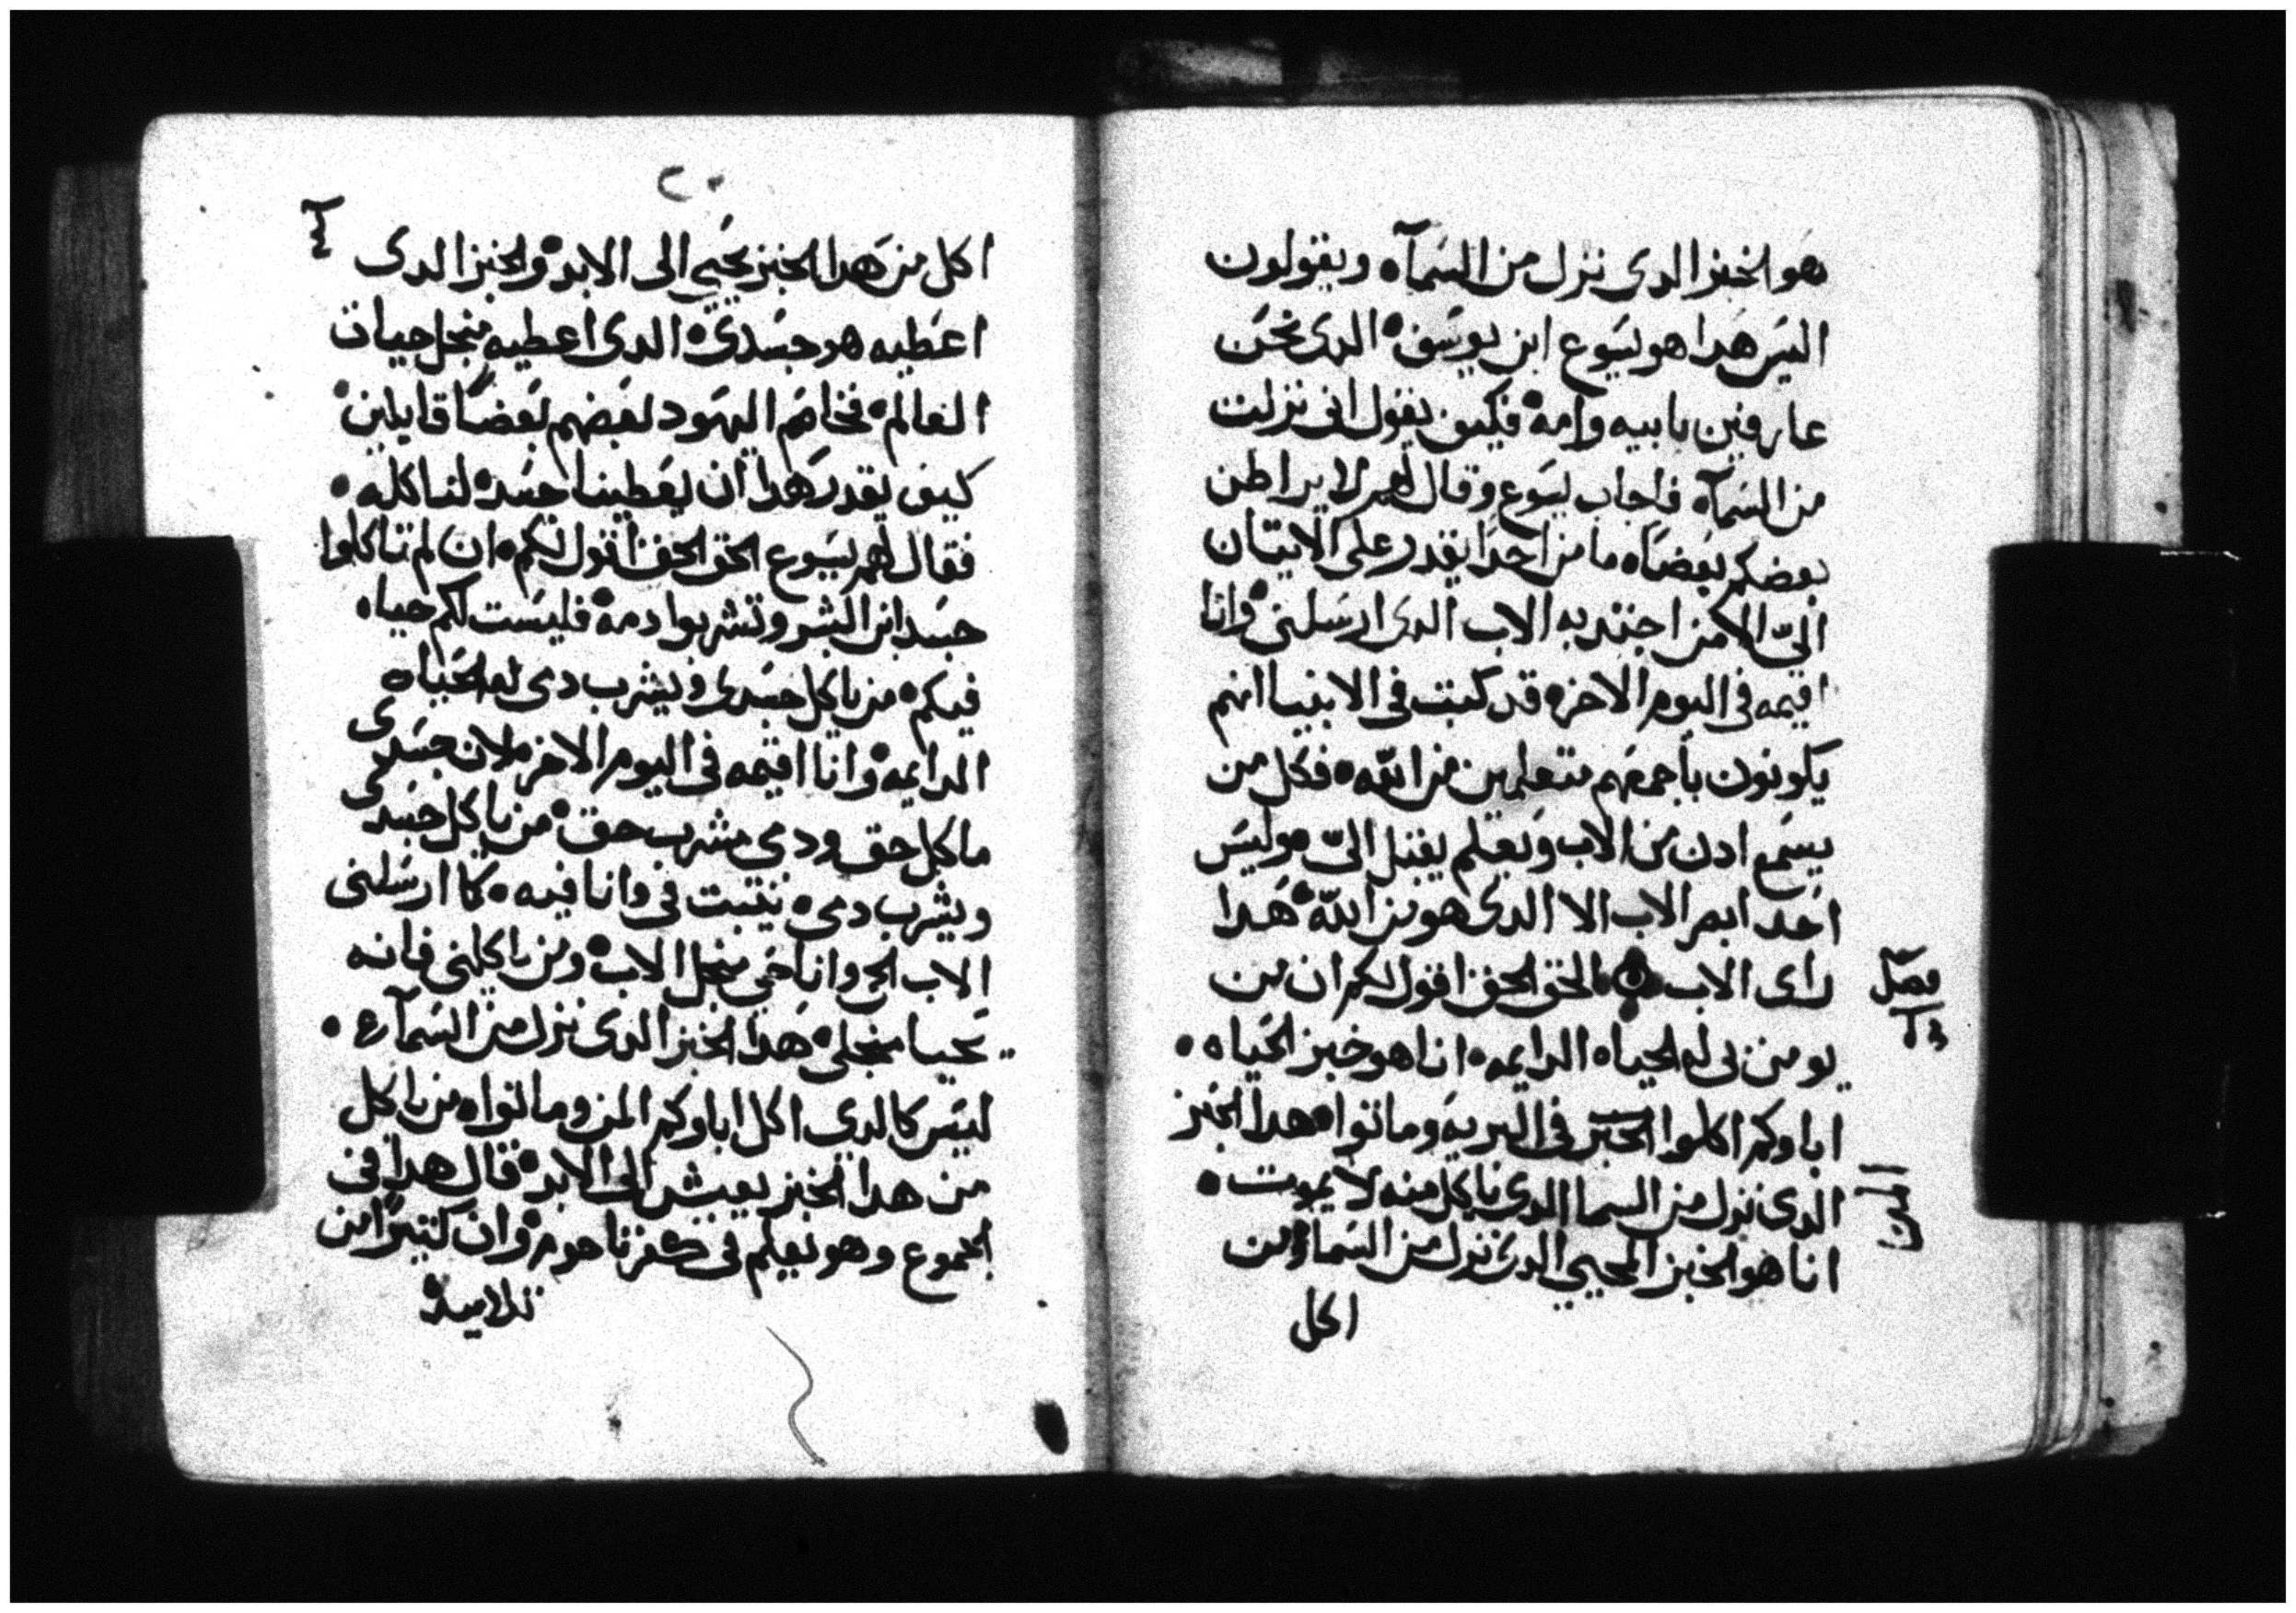 هو الخبز الدى نزل من السمآه ويقولون
اليس هدا هو يسوع ابن يوسف الدى نحن
عارفين بابيه وامه فكيف يقول انى نزلت
من السمآه فاجاب يسوع وقال لهم لا يراطن
بعضكم بعضاه ما من احدا يقدر على الاتيان
الىّ الا من اجتدبه الاب الدى ارسلنى وانا
اقيمه فى اليوم الاخره قد كتبت فى الانبيا انهم
يكونون باجمعهم متعلمين من اللّه فكل من
يسمع ادن من الاب وتعلم يقبل الىّ وليس
احد ابصر الاب الا الدى هو من اللّه هدا
راى الاب الحق الحق اقول لكم ان من
يومن بى له الحياه الدايمه انا هو خبز الحياه
اباوكم اكلوا الخبز فى البريه وماتوا هدا الخبز
الدى نزل من السما الدى ياكل منه لا يموت
انا هو الخبز المحيي الدى نزل من السما ومن
اكل
فصل
المن
٢٠
اكل من هدا الخبز يحيي الى الابد والخبز الدى
اعطيه هو جسدى الدى اعطيه منجل حيات
العالم فخاصم اليهود لعضهم بعضاً قايلين
كيف يقدر هدا ان يعطينا جسده لناكله
فقال لهم يسوع الحق الحق اقول لكم ان لم تاكلوا
جسد ابن البشر وتشربوا دمه فليست لكم حياه
فيكم من ياكل جسدى ويشرب دمى له الحياه
الدايمه وانا اقيمه فى اليوم الاخر لان جسدى
ماكل حق ودمى مشرب حق من ياكل جسدى
ويشرب دمى يتبت فى وانا فيه كما ارسلنى
الاب الحى وانا حي منجل الاب ومن ياكلنى فانه
يحيا منجلى هدا الخبز الدى نزل من السمآء
ليس كالدى اكل اباوكم المن وماتوا من ياكل
من هدا الخبز يعيش الى الابد قال هدا فى
الجموع وهو يعلم فى كفرناحوم وان كتيراً من
تلاميده